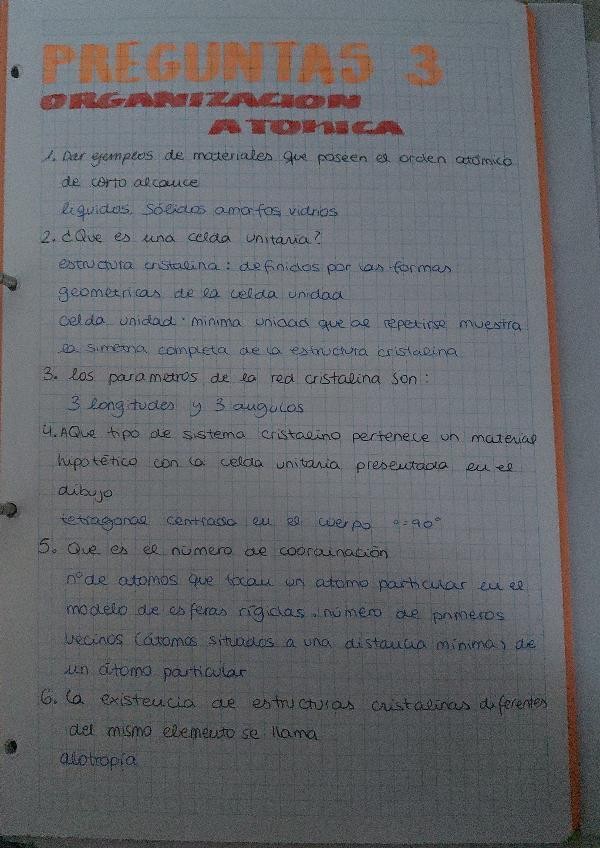 PREGUNTAS 3
ORGANIZACION
ATOMICA
1. Dar ejemplos de materiales que poseen el orden atómico
de corto alcance
líquidos, sólidos amorfos, vidrios
2. ¿Que es una celda unitaria?
estructura cristalina: definidos por las formas
geometricas de la celda unidad
celda unidad: minima unidad que al repetirse muestra
la simetria completa de la estructura cristalina
3. los parametros de la red cristalina son:
3 longitudes y 3 angulos
4. A Que tipo de sistema cristalino pertenece un material
hipotético con la celda unitaria presentada en el
dibujo
tetragonal centrado en el cuerpo =90°
5. Que es el número de coordinación
nº de atomos que tocan un atomo particular en el
modelo de esferas rígidas. número de primeros
vecinos (átomos situados a una distancia mínima) de
un átomo particular
6. La existencia de estructuras cristalinas diferentes
del mismo elemento se llama
alotropía